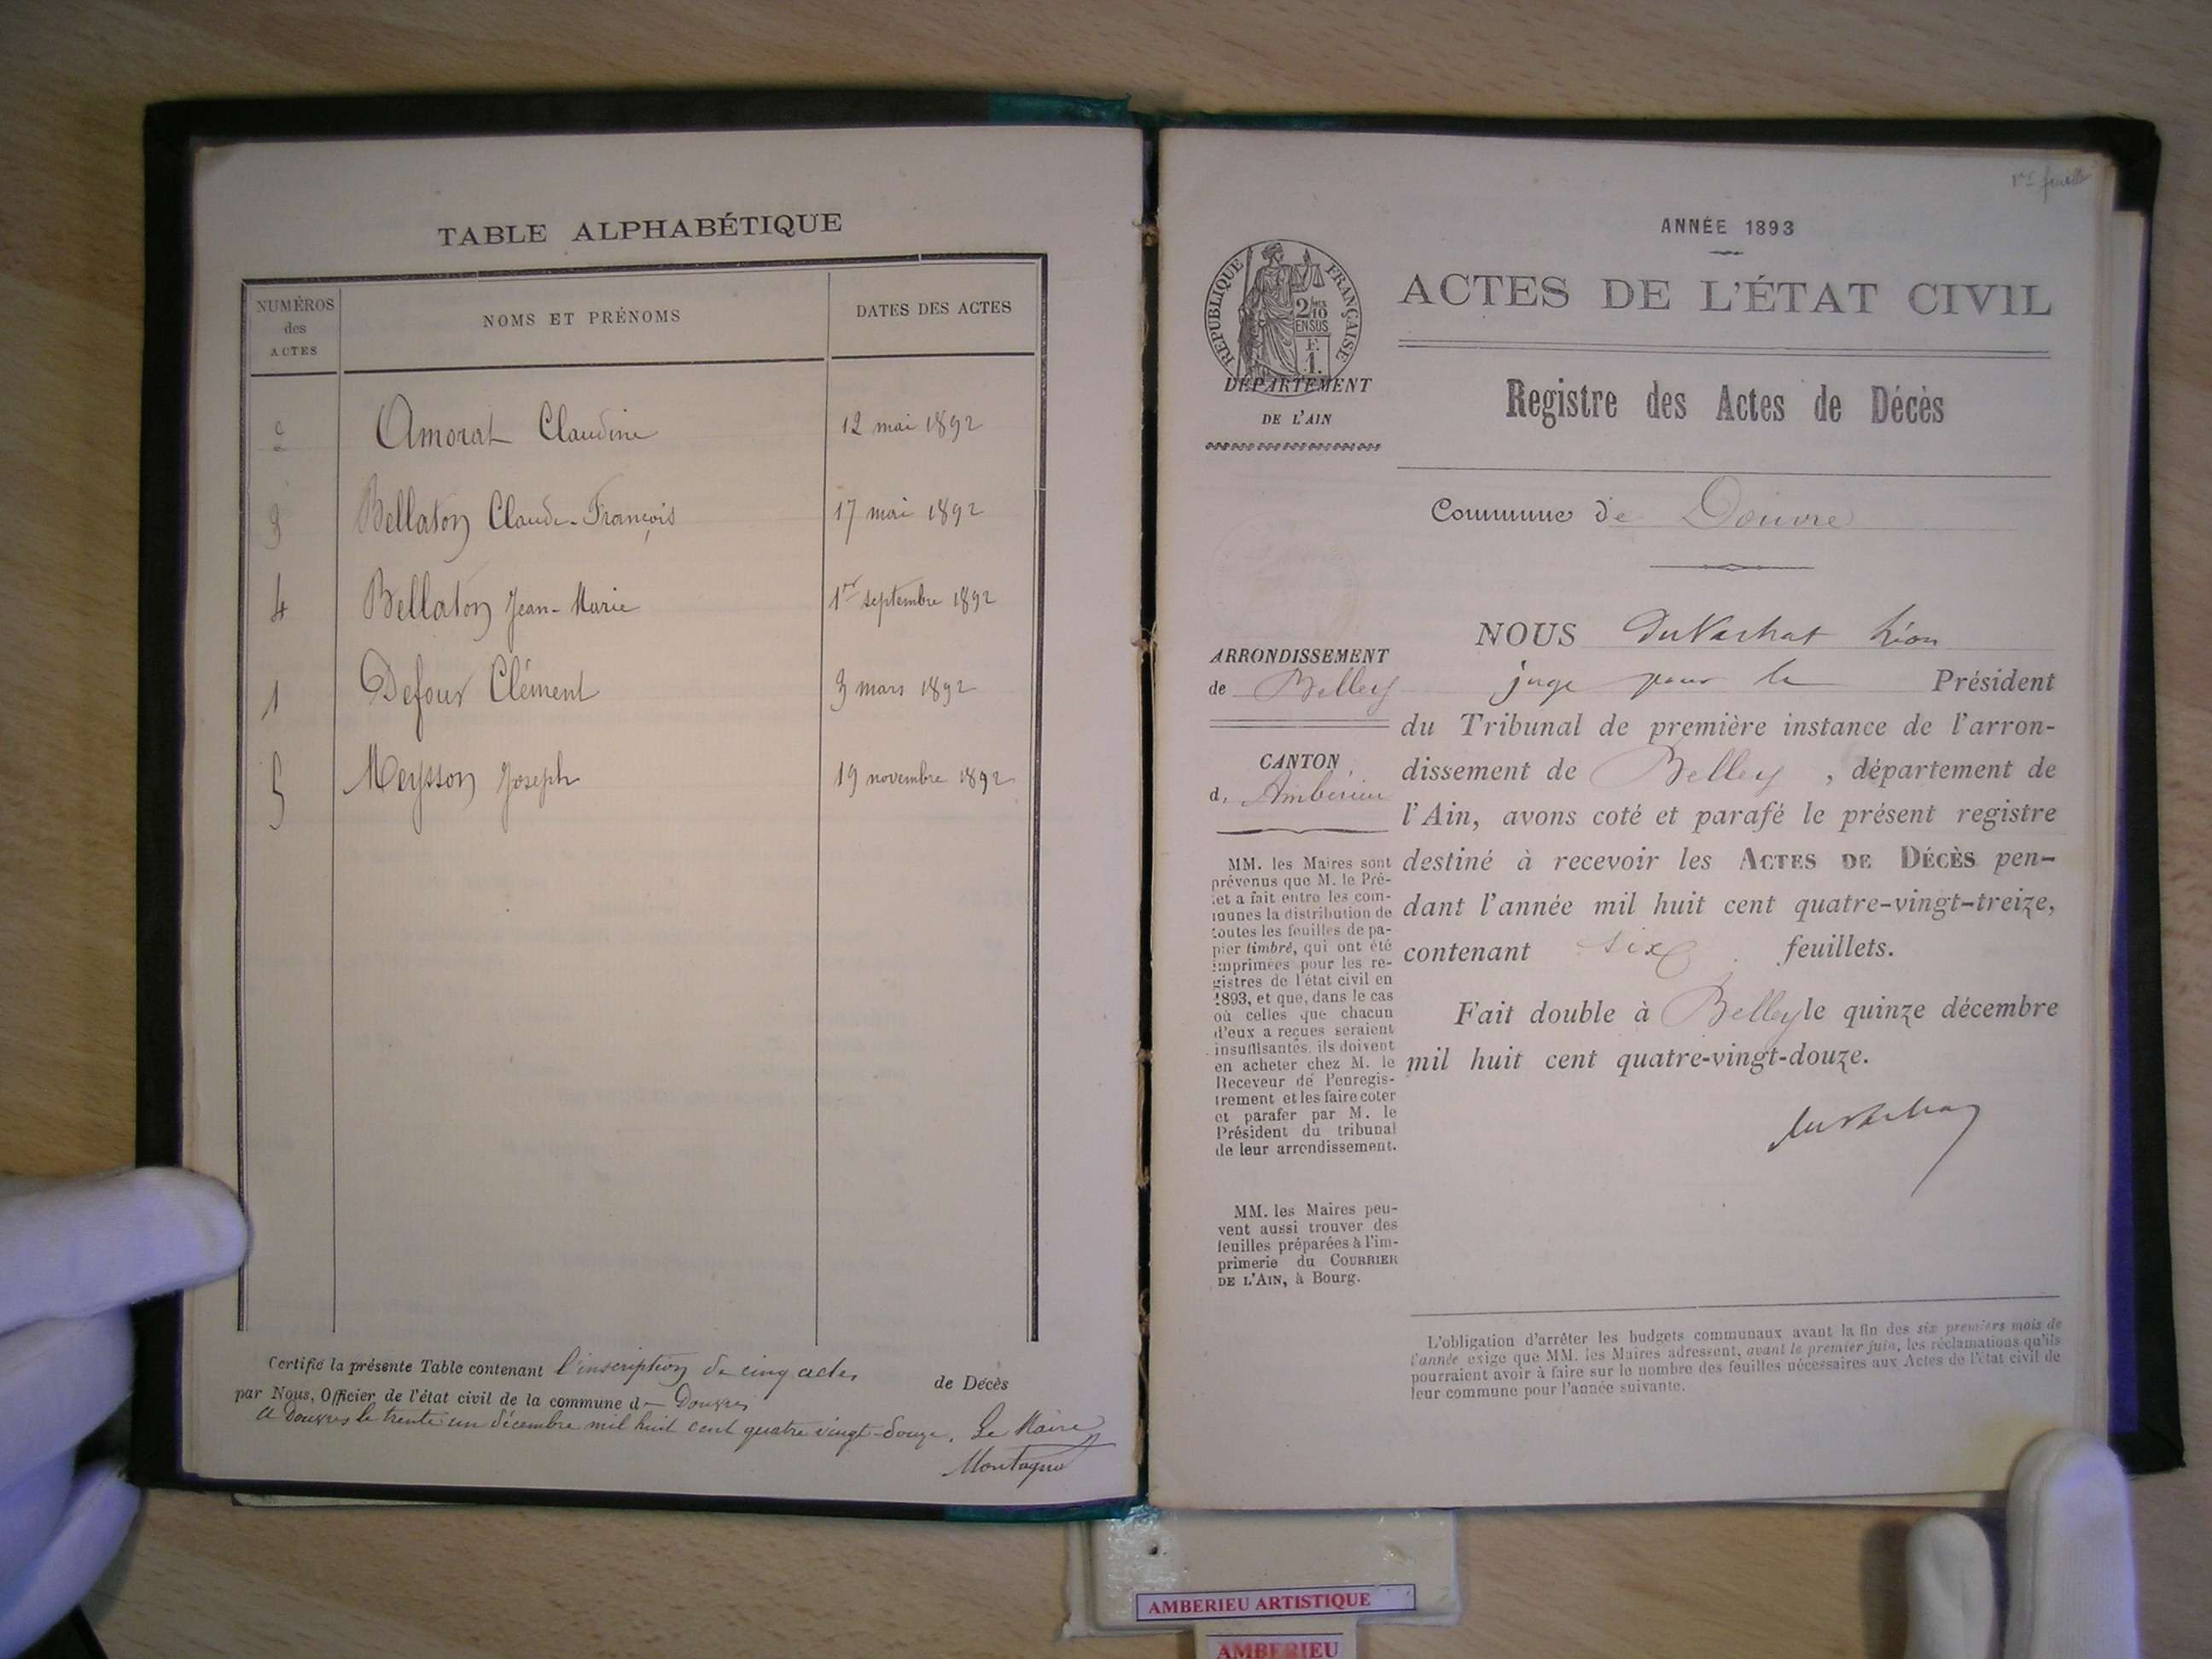 TABLE ALPHABÉTIQUE
NUMÉROS
des
ACTES
NOMS ET PRÉNOMS
DATES DES ACTES
2 Amorat Claudine 12 mai 1892
3 Bellaton Claude-François 17 mai 1892
4 Bellaton Jean-Marie 1er septembre 1892
1 Defour Clément 3 mars 1892
5 Meysson Joseph 19 novembre 1892
Certifié la présente Table contenant l'inscription de cinq actes de Décès
par Nous, Officier de l'état civil de la commune d Douvres
A Douvres le trente un décembre mil huit cent quatre vingt-douze. Le Maire
Montagne
ANNÉE 1893
ACTES DE L'ÉTAT CIVIL
RÉPUBLIQUE FRANÇAISE
2/10
EN SUS
F.
1.
DÉPARTEMENT
DE L'AIN
Registre des Actes de Décès
Commune de Douvre
ARRONDISSEMENT
de Belley
CANTON
d' Ambérieu
MM. les Maires sont
prévenus que M. le Pré-
fet a fait entre les com-
munes la distribution de
toutes les feuilles de pa-
pier timbré, qui ont été
imprimées pour les re-
gistres de l'état civil en
1893, et que, dans le cas
où celles que chacun
d'eux a reçues seraient
insuffisantes, ils doivent
en acheter chez M. le
Receveur de l'enregis-
trement et les faire coter
et parafer par M. le
Président du tribunal
de leur arrondissement.
MM. les Maires peu-
vent aussi trouver des
feuilles préparées à l'im-
primerie du COURRIER
DE L'AIN, à Bourg.
NOUS DuVachat Léon
juge pour le Président
du Tribunal de première instance de l'arron-
dissement de Belley, département de
l'Ain, avons coté et parafé le présent registre
destiné à recevoir les ACTES DE DÉCÈS pen-
dant l'année mil huit cent quatre-vingt-treize,
contenant six feuillets.
Fait double à Belley le quinze décembre
mil huit cent quatre-vingt-douze.
L'obligation d'arrêter les budgets communaux avant la fin des six premiers mois de
l'année exige que MM. les Maires adressent, avant le premier juin, les réclamations qu'ils
pourraient avoir à faire sur le nombre des feuilles nécessaires aux Actes de l'état civil de
leur commune pour l'année suivante.
AMBERIEU ARTISTIQUE
AMBERIEU